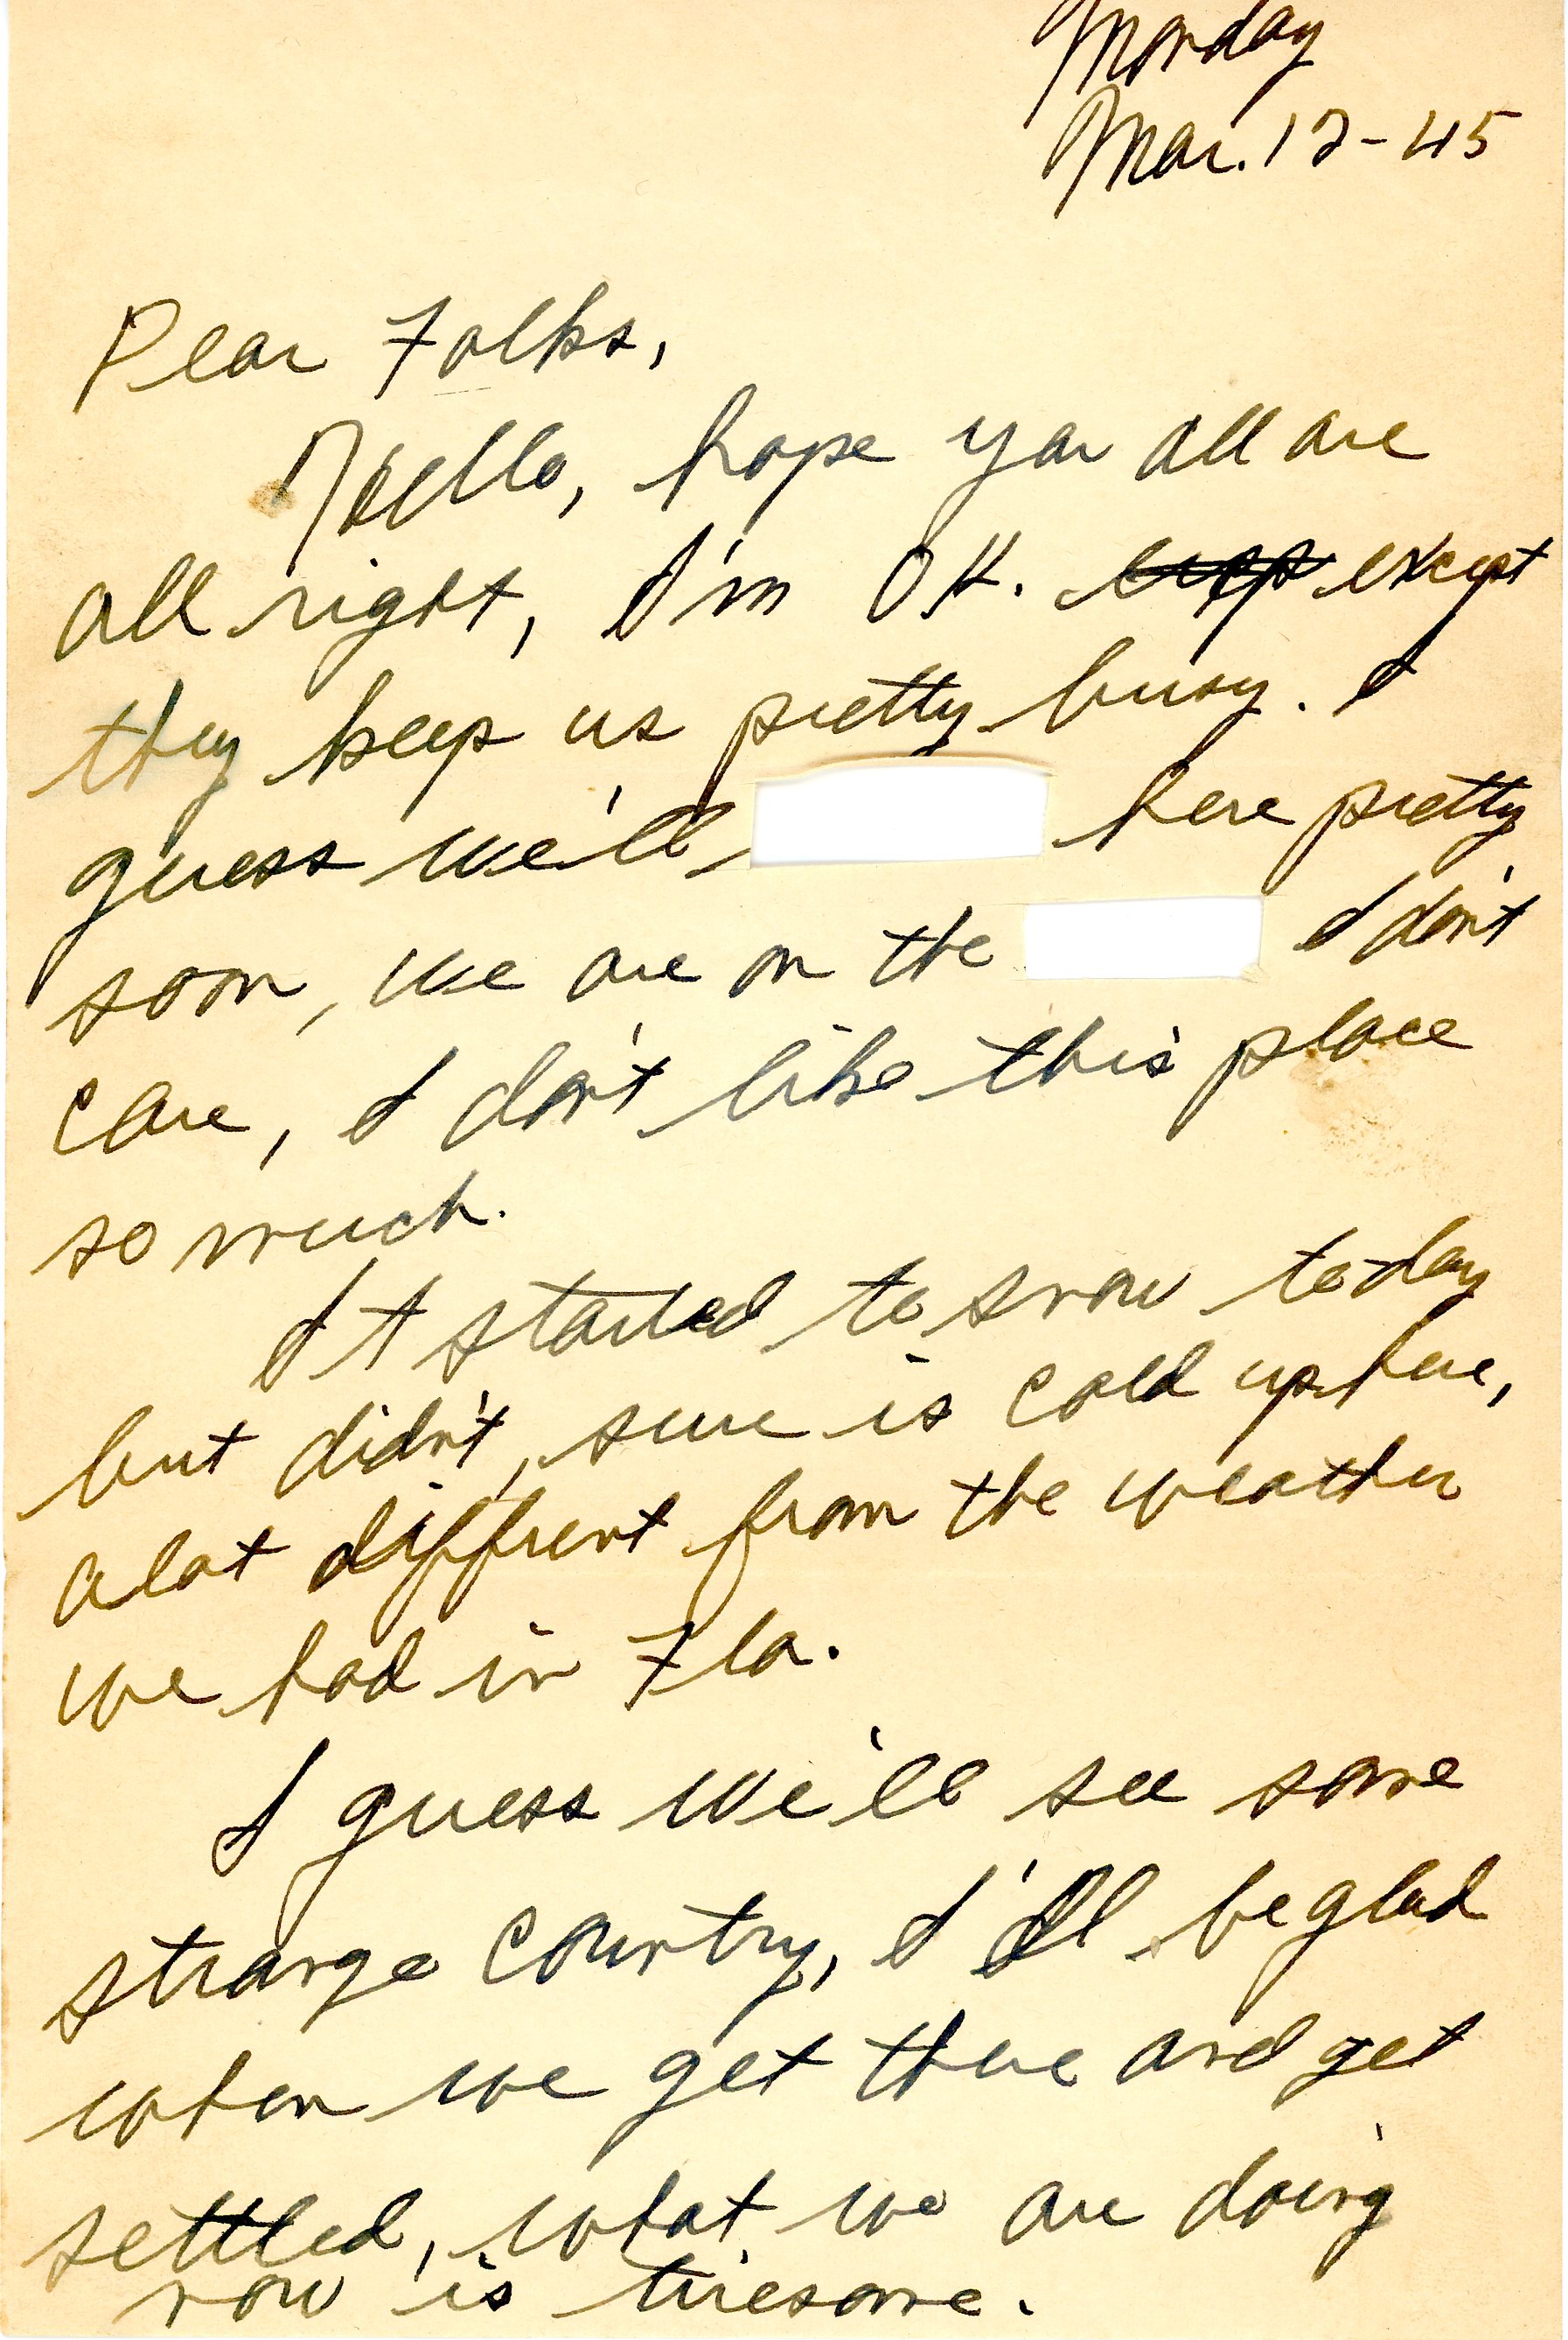 Monday
Mar. 12-45
Dear Folks,
Hello, hope you all are
all right, I'm OK. except
they keep us pretty busy. I
guess we'll here pretty
soon, we are on the I don't
care, I don't like this place
so much.
It started to snow today
but didn't, sure is cold up here,
alot diffrent from the weather
we had in Fla.
I guess we'll see some
strange country, I'll be glad
when we get there and get
settled, what we are doing
now is tiresome.